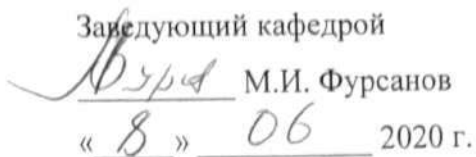 Заведующий кафедрой
М.И. Фурсанов
« 8 » 06 2020 г.